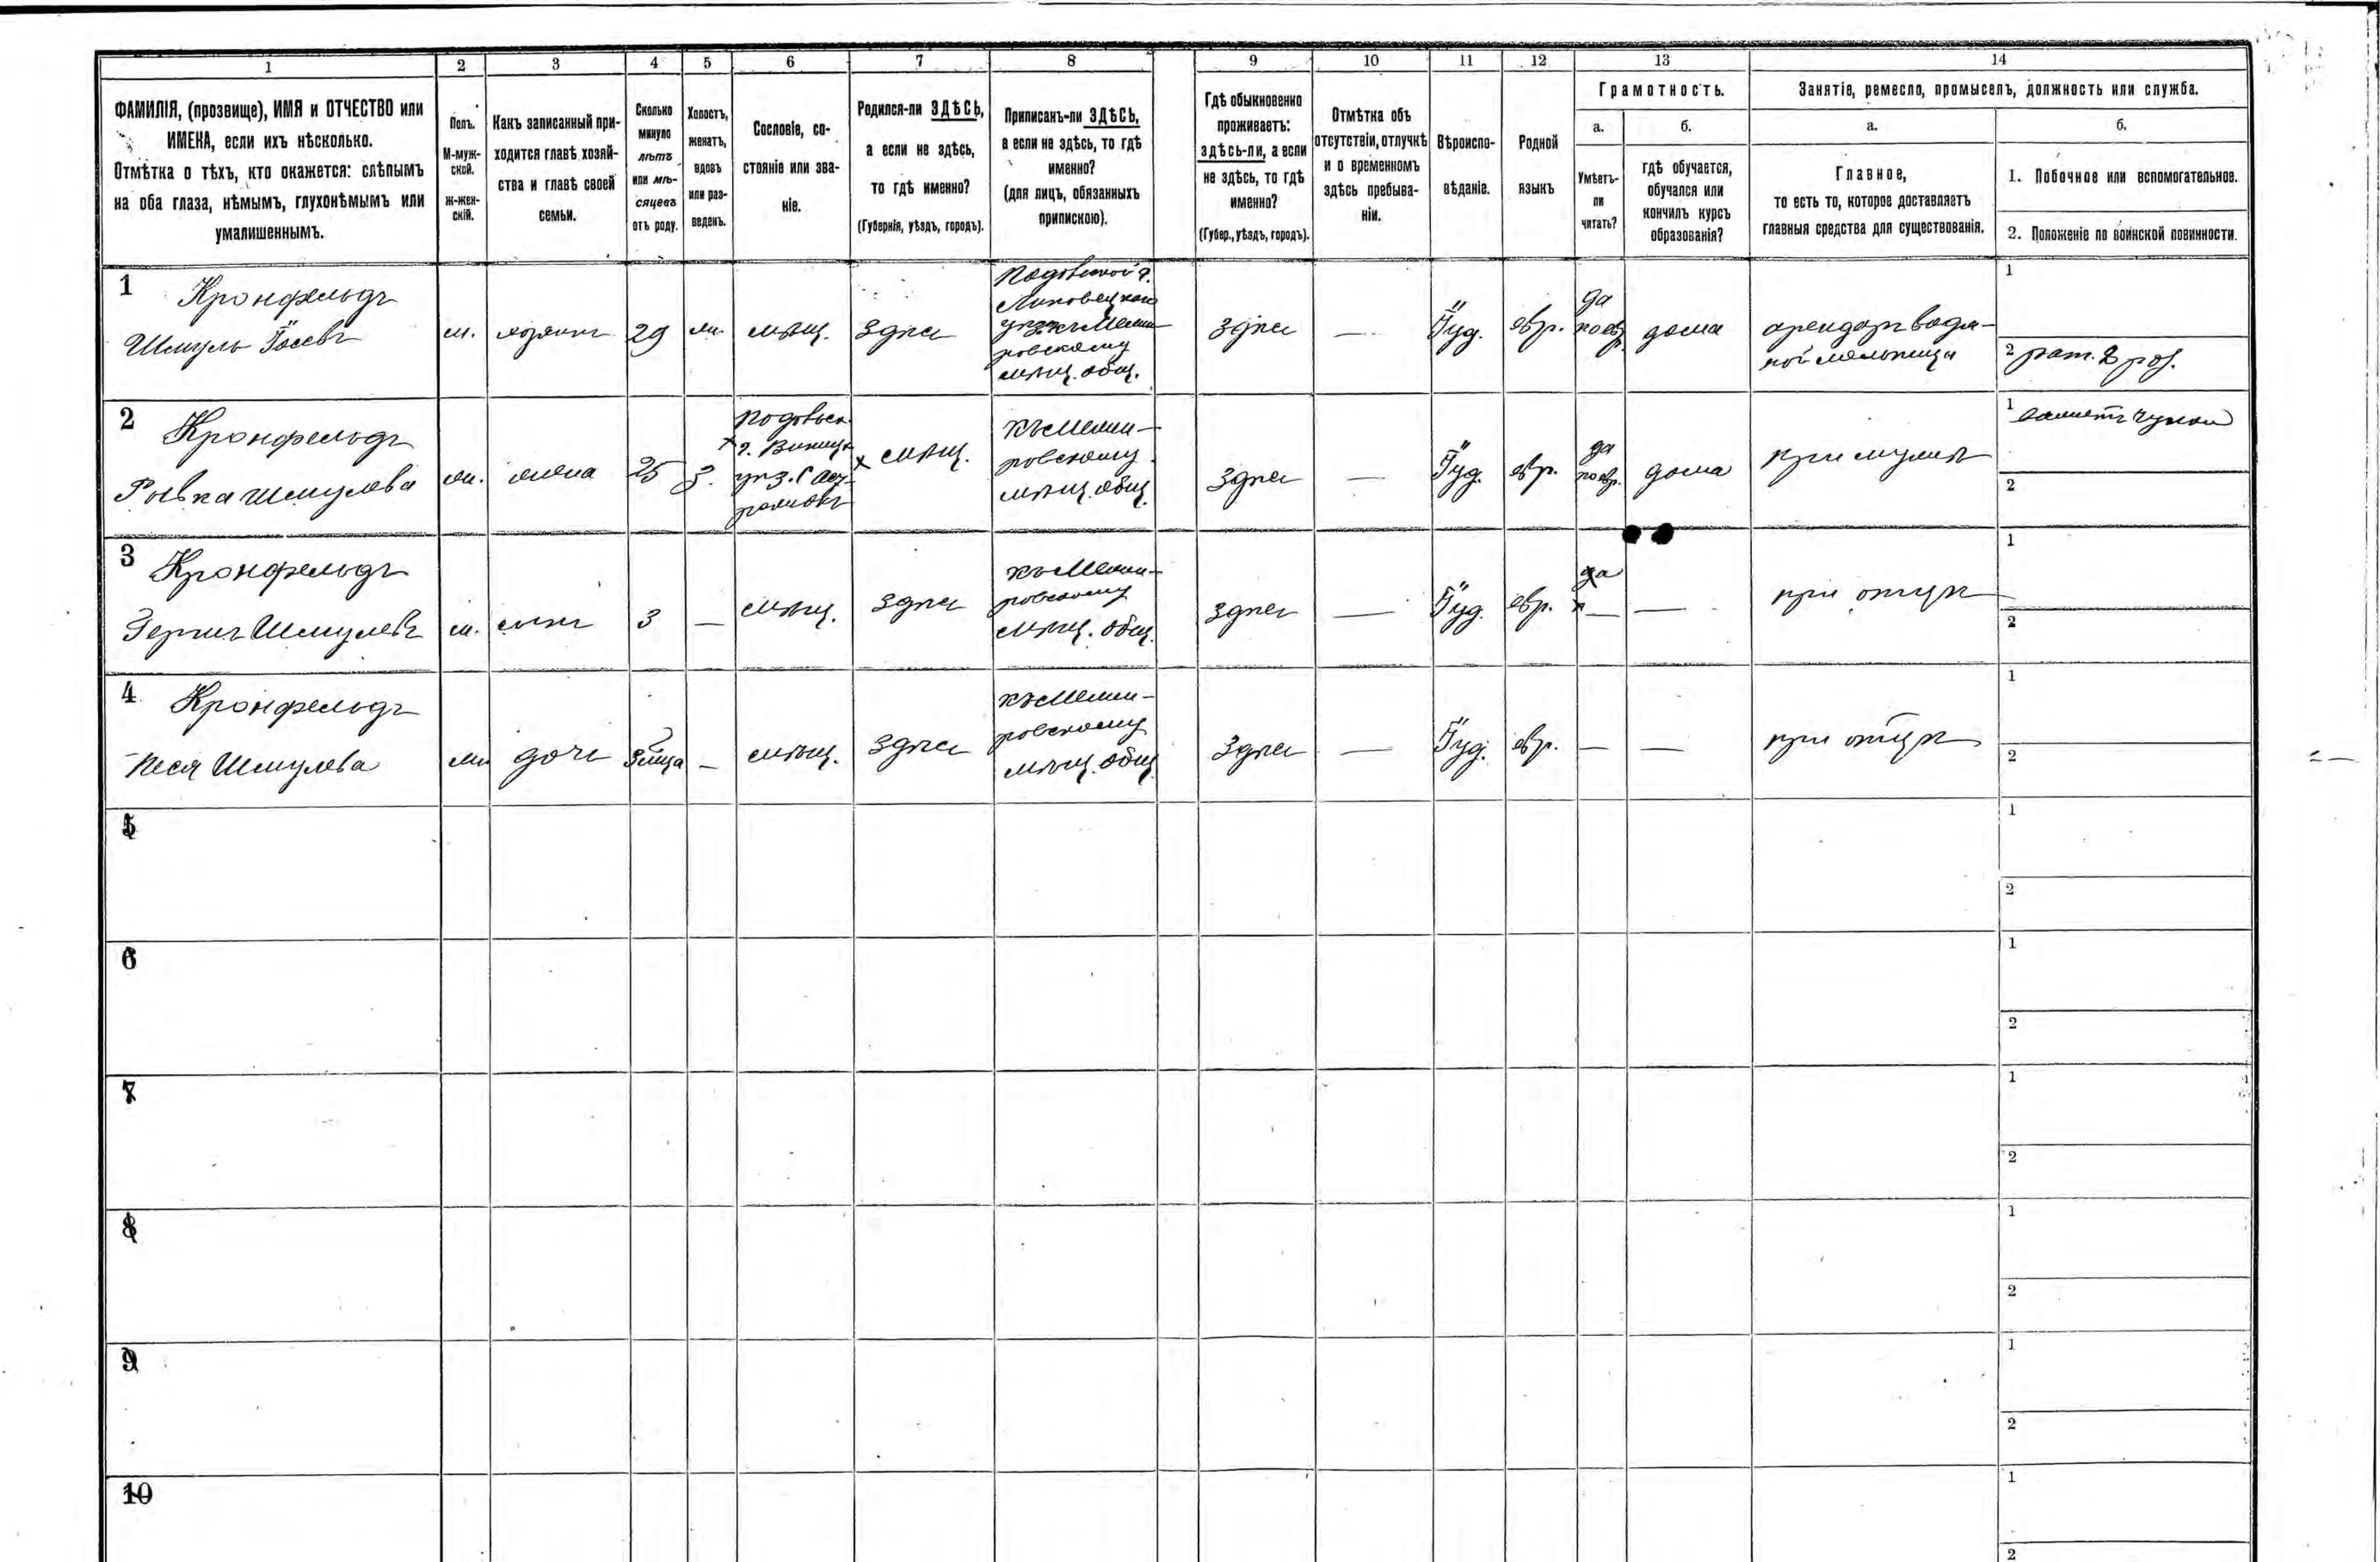 1 2 3 4 5 6 7 8 9 10 11 12 13 14
ФАМИЛІЯ, (прозвище), ИМЯ и ОТЧЕСТВО или
ИМЕНА, если ихъ нѣсколько.
Отмѣтка о тѣхъ, кто окажется: слѣпымъ
на оба глаза, нѣмымъ, глухонѣмымъ или
умалишеннымъ.
Полъ.
М-муж-
ской.
ж-жен-
скій.
Какъ записанный при-
ходится главѣ хозяй-
ства и главѣ своей
семьи.
Сколько
минуло
лѣтъ
или мѣ-
сяцевъ
отъ роду.
Холостъ,
женатъ,
вдовъ
или раз-
веденъ.
Сословіе, со-
стояніе или зва-
ніе.
Родился-ли ЗДѢСЬ,
а если не здѣсь,
то гдѣ именно?
(Губернія, уѣздъ, городъ).
Приписанъ-ли ЗДѢСЬ,
а если не здѣсь, то гдѣ
именно?
(для лицъ, обязанныхъ
припискою).
Гдѣ обыкновенно
проживаетъ:
здѣсь-ли, а если
не здѣсь, то гдѣ
именно?
(Губер., уѣздъ, городъ).
Отмѣтка объ
отсутствіи, отлучкѣ
и о временномъ
здѣсь пребыва-
ніи.
Вѣроиспо-
вѣданіе.
Родной
языкъ
Грамотность.
а.
Умѣетъ-
ли
читать?
б.
гдѣ обучается,
обучался или
кончилъ курсъ
образованія?
Занятіе, ремесло, промыселъ, должность или служба.
а.
Главное,
то есть то, которое доставляетъ
главныя средства для существованія.
б.
1. Побочное или вспомогательное.
2. Положеніе по воинской повинности.
1
Кронфельдъ
Шмуль Іосевъ
м.
хозяинъ
29
ж.
мѣщ.
здѣсь
Подольской г.
Липовецкаго
мѣщ. общ.
здѣсь
—
Іуд.
евр.
да
по евр.
дома
арендаръ водя-
ной мельницы
1
2 рат. 2 раз.
2
Кронфельдъ
Ривка Шмулева
ж.
жена
25
з.
Подольск.
г. Винниц.
уѣз.
мѣщ.
мѣщ. общ.
здѣсь
—
Іуд.
евр.
да
по евр.
дома
при мужѣ
1
2
3
Кронфельдъ
Гершъ Шмулевъ
м.
сынъ
3
—
мѣщ.
здѣсь
мѣщ. общ.
здѣсь
—
Іуд.
евр.
—
—
при отцѣ
1
2
4
Кронфельдъ
Песя Шмулева
ж.
дочь
—
мѣщ.
здѣсь
мѣщ. общ.
здѣсь
—
Іуд.
евр.
—
—
при отцѣ
1
2
5
1
2
6
1
2
7
1
2
8
1
2
9
1
2
10
1
2